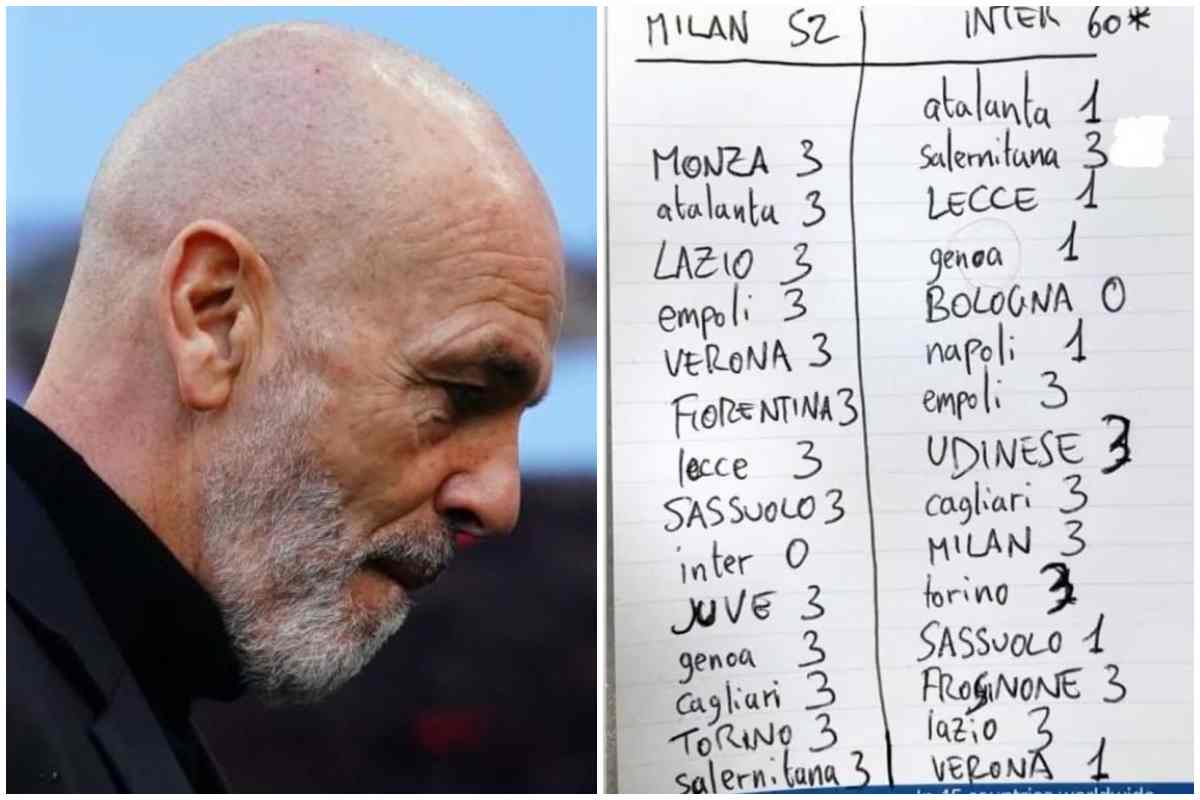 MILAN 52
MONZA 3
atalanta 3
LAZIO 3
empoli 3
VERONA 3
FIORENTINA 3
lecce 3
SASSUOLO 3
inter 0
JUVE 3
genoa 3
cagliari 3
TORINO 3
salernitana 3
INTER 60*
atalanta 1
salernitana 3
LECCE 1
genoa 1
BOLOGNA 0
napoli 1
empoli 3
UDINESE 3
cagliari 3
MILAN 3
torino 3
SASSUOLO 1
FROSINONE 3
lazio 3
VERONA 1
In 15 countries worldwide